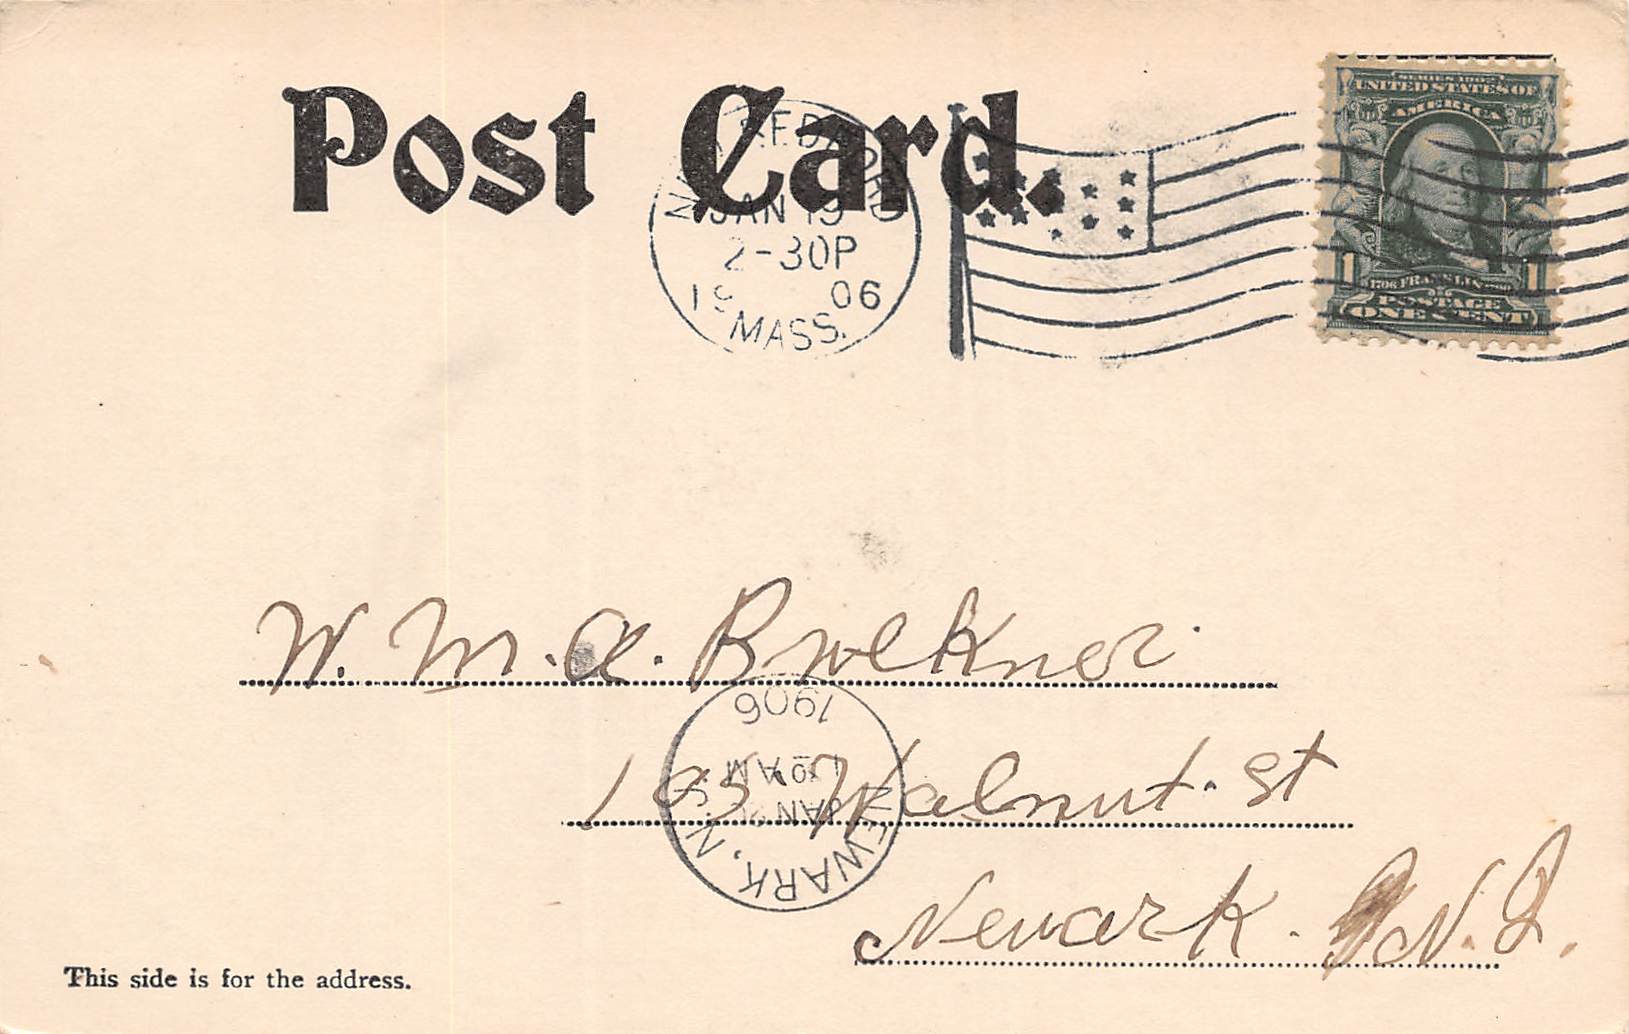 Post Card.
NEW BEDFORD
JAN 19
2-30P
1906
MASS.
SERIES 1902
UNITED STATES OF
AMERICA
1 1706 FRANKLIN 1790 1
POSTAGE
ONE CENT
W. M. A.
1906
AM
JAN 20
NEWARK, N.J.
Walnut. St
Newark. N. J.
This side is for the address.